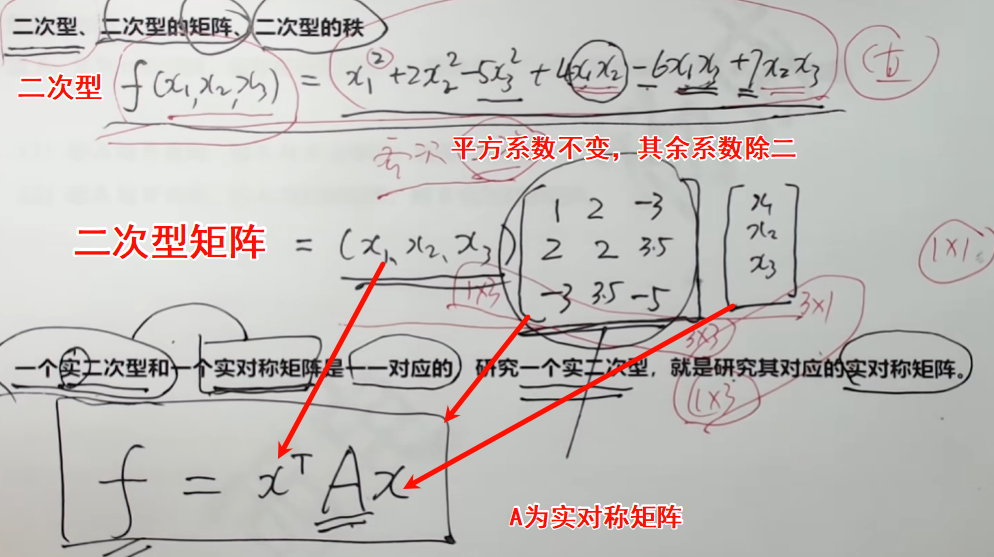 二次型、二次型的矩阵、二次型的秩
二次型 f(x₁,x₂,x₃) = x₁²+2x₂²-5x₃²+4x₁x₂-6x₁x₃+7x₂x₃
平方系数不变，其余系数除二
二次型矩阵 = (x₁,x₂,x₃) [1 2 -3] [x₁]
[2 2 3.5] [x₂]
[-3 3.5 -5] [x₃]
1×1
1×3 3×3 3×1
一个实二次型和一个实对称矩阵是一一对应的 研究一个实二次型，就是研究其对应的实对称矩阵。
1×3
f = xᵀAx
A为实对称矩阵